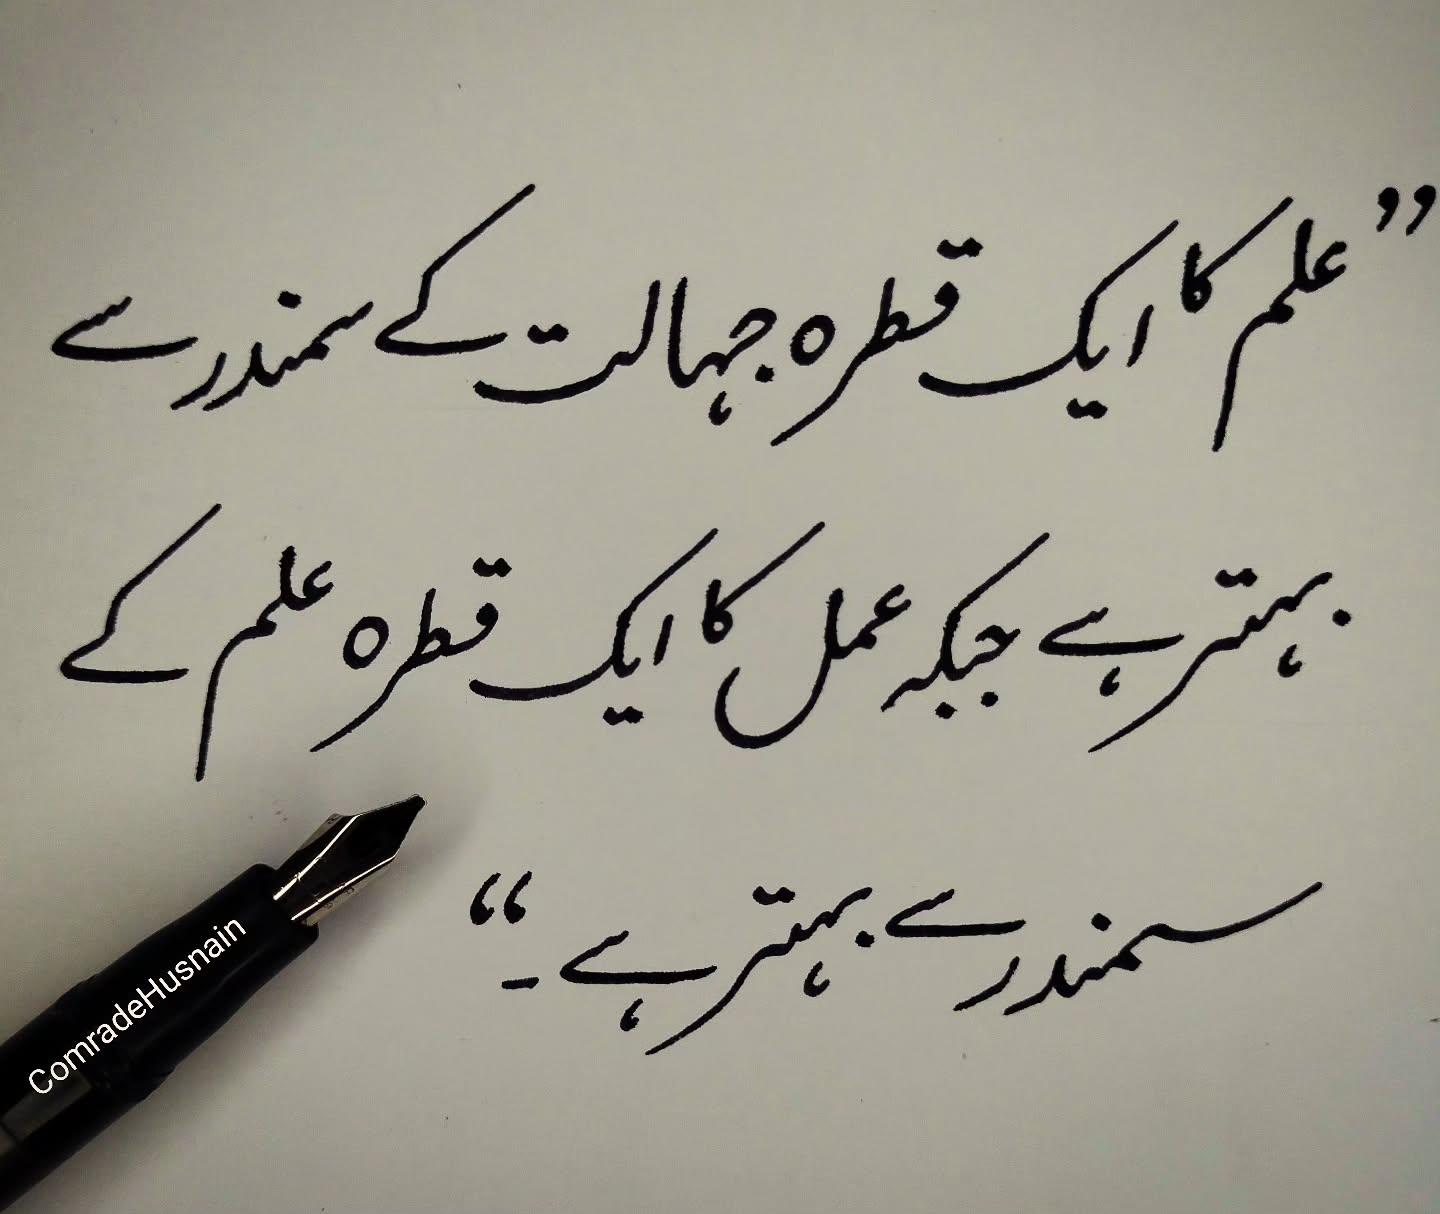 ”علم کا ایک قطرہ جہالت کے سمندر سے
بہتر ہے جبکہ عمل کا ایک قطرہ علم کے
سمندر سے بہتر ہے۔“
ComradeHusnain